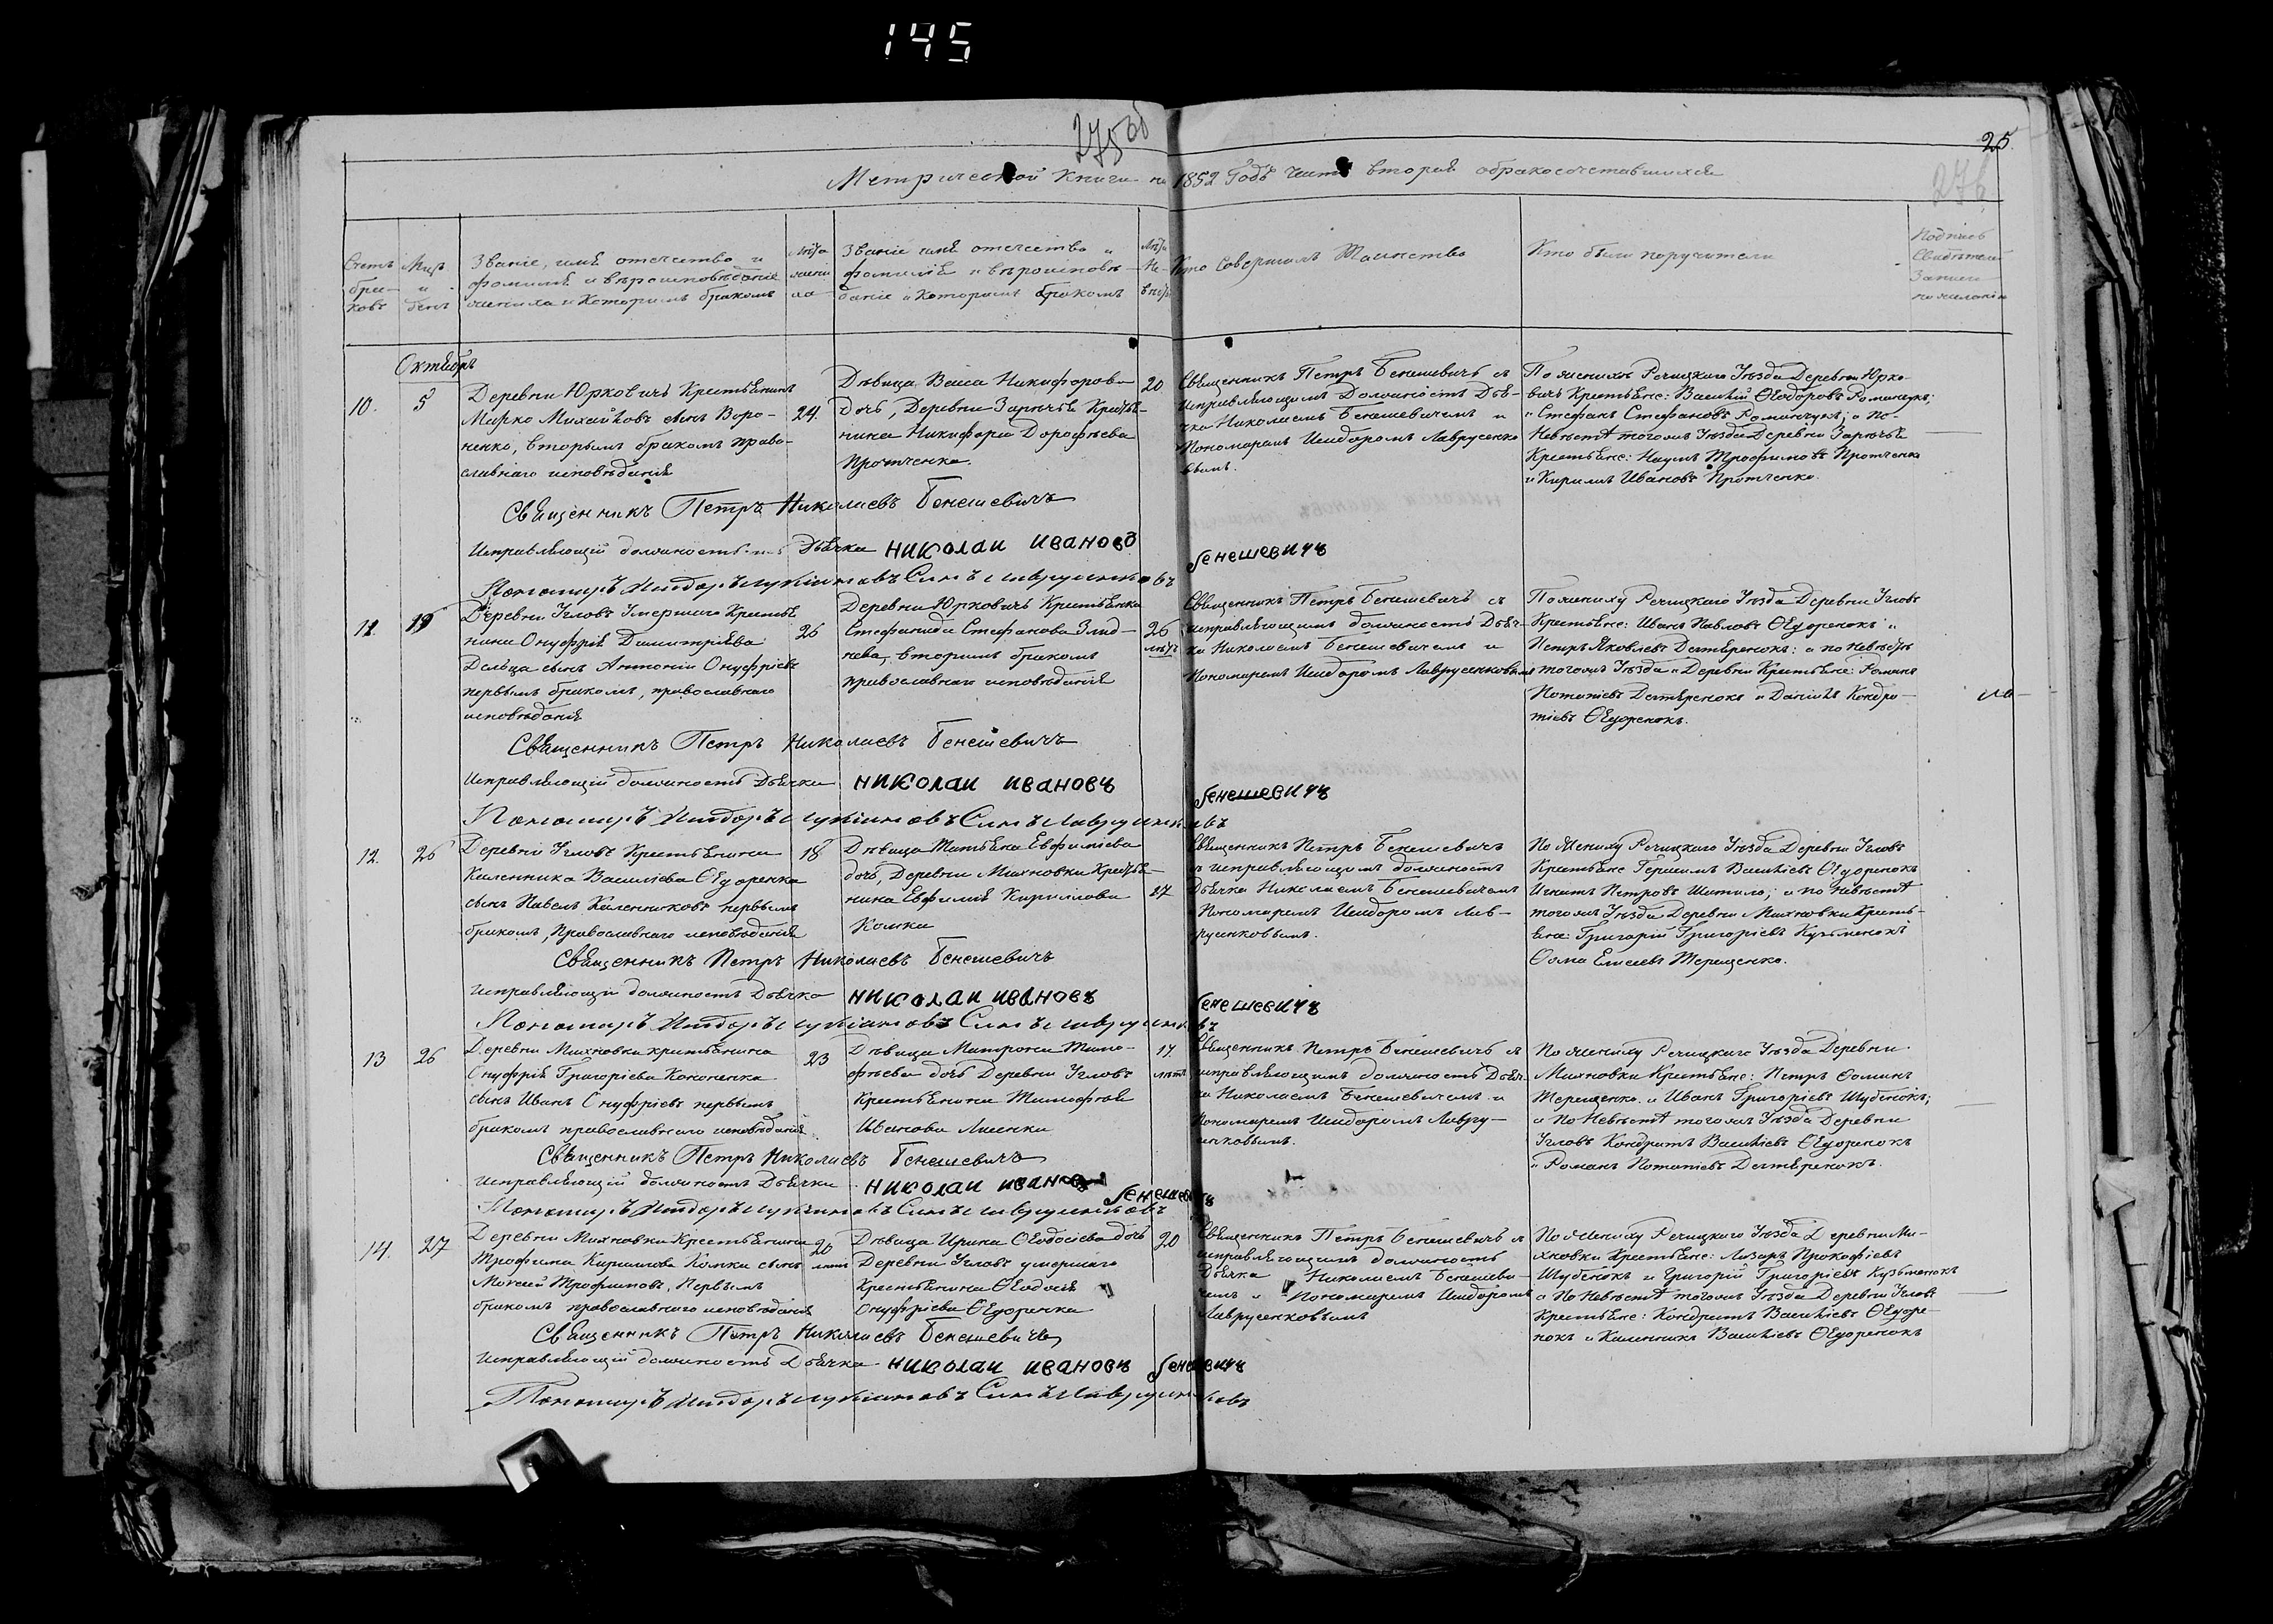 145
275 об
25.
276
Метрической Книги на 1852 Годъ часть вторая о бракосочетавшихся
Счетъ браковъ
Мцъ и день
Званіе, имя отечество и
фамилія и вѣроисповѣданіе
жениха и Которымъ бракомъ
Лѣта жениха
Званіе имя отечество и
фамилія и вѣроисповѣ-
даніе и Которымъ бракомъ
Лѣта Невѣсты
Кто Совершалъ Таинство
Кто были поручители
Подпись
Свидѣтелей
Записи
по желанію
Октябрь
10.
5
Деревни Юрковичъ Крестьянинъ
Марко Михайловъ сынъ Воро-
ненко, вторымъ бракомъ право-
славнаго исповѣданія
24.
Дѣвица Васса Никифорова
дочь, Деревни Зарѣчья Крестья-
нина Никифора Дорофѣева
Протченка.
20
Священникъ Петръ Бенешевичъ съ
Исправляющимъ Должность Дья-
чка Николаемъ Бенешевичемъ и
Пономаремъ Исидоромъ Лаврусенко
вымъ.
По женихѣ Речицкаго Уѣзда Деревни Юрко-
вичъ Крестьяне: Василій Ѳеодоровъ Романчукъ;
и Стефанъ Стефановъ Романчукъ; а по-
Невѣстѣ тогожъ Уѣзда Деревни Зарѣчья
Крестьяне: Наумъ Трофимовъ Протченко
и Кирилъ Ивановъ Протченко.
Священникъ Петръ Николаевъ Бенешевичъ
Исправляющій должность Дьячка николаи ивановъ бенешевичъ
Пономаръ Исидоръ Лукіановъ Синъ Лаврусинковъ
11.
19
Деревни Угловъ Умершаго Крестья
нина Онуфрія Димитріева
сынъ Антоній Онуфріевъ
первымъ бракомъ, православнаго
исповѣданія
26
Деревни Юрковичъ Крестьянка
Стефанида Стефанова
вторымъ бракомъ
православнаго исповѣданія
26
лѣтъ
Священникъ Петръ Бенешевичъ съ
исправляющимъ должность Дьяч-
ка Николаемъ Бенешевичемъ и
Пономаремъ Исидоромъ Лаврусенковымъ
По жениху Речицкаго Уѣзда Деревни Угловъ
Крестьяне: Иванъ Павловъ Ѳедоренокъ и
Петръ Яковлевъ Дегтяренокъ: а по Невѣстѣ
тогожъ Уѣзда и Деревни Крестьяне: Романъ
Потапіевъ Дегтяренокъ и Даніилъ Кондра-
тіевъ Ѳедоренокъ.
Священникъ Петръ Николаевъ Бенешевичъ
Исправляющій должность Дьячка николаи ивановъ бенешевичъ
Пономаръ Исидоръ Лукіановъ Синъ Лаврусинковъ
12.
26
Деревни Угловъ Крестьянина
Каленника Василіева Ѳедоренка
сынъ Павелъ Каленниковъ первымъ
бракомъ, Православнаго исповѣданія
18
Дѣвица Татьяна Евфиміева
дочь, Деревни Михновки Крестья-
нина Евфимія Кириллова
Комка
17
Священникъ Петръ Бенешевичъ
съ исправляющимъ должность
Дьячка Николаемъ Бенешевичемъ
и Пономаремъ Исидоромъ Лав-
русенковымъ.
По Жениху Речицкаго Уѣзда Деревни Угловъ
Крестьяне Герасимъ Василіевъ Ѳедоренокъ
Игнатъ Петровъ Шатило; а по Невѣстѣ
тогожъ Уѣзда Деревни Михновки Кресть-
яне: Григорій Григоріевъ Кузьменокъ
Ѳома Елисеевъ Терещенко.
Священникъ Петръ Николаевъ Бенешевичъ
исправляющій должность Дьячка николаи ивановъ бенешевичъ
Пономаръ Исидоръ Лукіановъ Синъ Лаврусинковъ
13
26
Деревни Михновки крестьянина
Онуфрія Григоріева Кононенка
сынъ Иванъ Онуфріевъ первымъ
бракомъ православнаго исповѣданія
23
Дѣвица Матрона Тимо-
фѣева дочь Деревни Угловъ
Крестьянина Тимофѣя
Иванова Лисенка
17.
лѣтъ
Священникъ Петръ Бенешевичъ съ
исправляющимъ должность Дьяч-
ка Николаемъ Бенешевичемъ и
Пономаремъ Исидоромъ Лавру-
сенковымъ.
По жениху Речицкаго Уѣзда Деревни
Михновки Крестьяне: Петръ Ѳоминъ
Терещенко. и Иванъ Григоріевъ Шубенокъ;
а по Невѣстѣ тогожъ Уѣзда Деревни
Угловъ Кондратъ Василіевъ Ѳедоренокъ
и Романъ Потапіевъ Дегтяренокъ.
Священникъ Петръ Николаевъ Бенешевичъ
исправляющій должность Дьячка николаи ивановъ бенешевичъ
Пономаръ Исидоръ Лукіановъ Синъ Лаврусинковъ
14.
27
Деревни Михновки Крестьянина
Трофима Кириллова Комки сынъ
Моисей Трофимовъ, Первымъ
бракомъ православнаго исповѣданія
20
лѣтъ
Дѣвица Ирина Ѳеодосіева дочь
Деревни Угловъ умершаго
Крестьянина Ѳеодосія
Онуфріева Ѳедоренка
20
Священникъ Петръ Бенешевичъ съ
исправляющимъ должность
Дьячка Николаемъ Бенешеви-
чемъ и Пономаремъ Исидоромъ
Лаврусенковымъ
По Жениху Речицкаго Уѣзда Деревни Ми-
хновки Крестьяне: Лазарь Прокофіевъ
Шубенокъ и Григорій Григоріевъ Кузьменокъ
а По Невѣстѣ тогожъ Уѣзда Деревни Угловъ
Крестьяне: Кондратъ Василіевъ Ѳедоре-
нокъ и Каленникъ Василіевъ Ѳедоренокъ
Священникъ Петръ Николаевъ Бенешевичъ
Исправляющій должность Дьячка николаи ивановъ бенешевичъ
Пономаръ Исидоръ Лукіановъ Синъ Лаврусинковъ